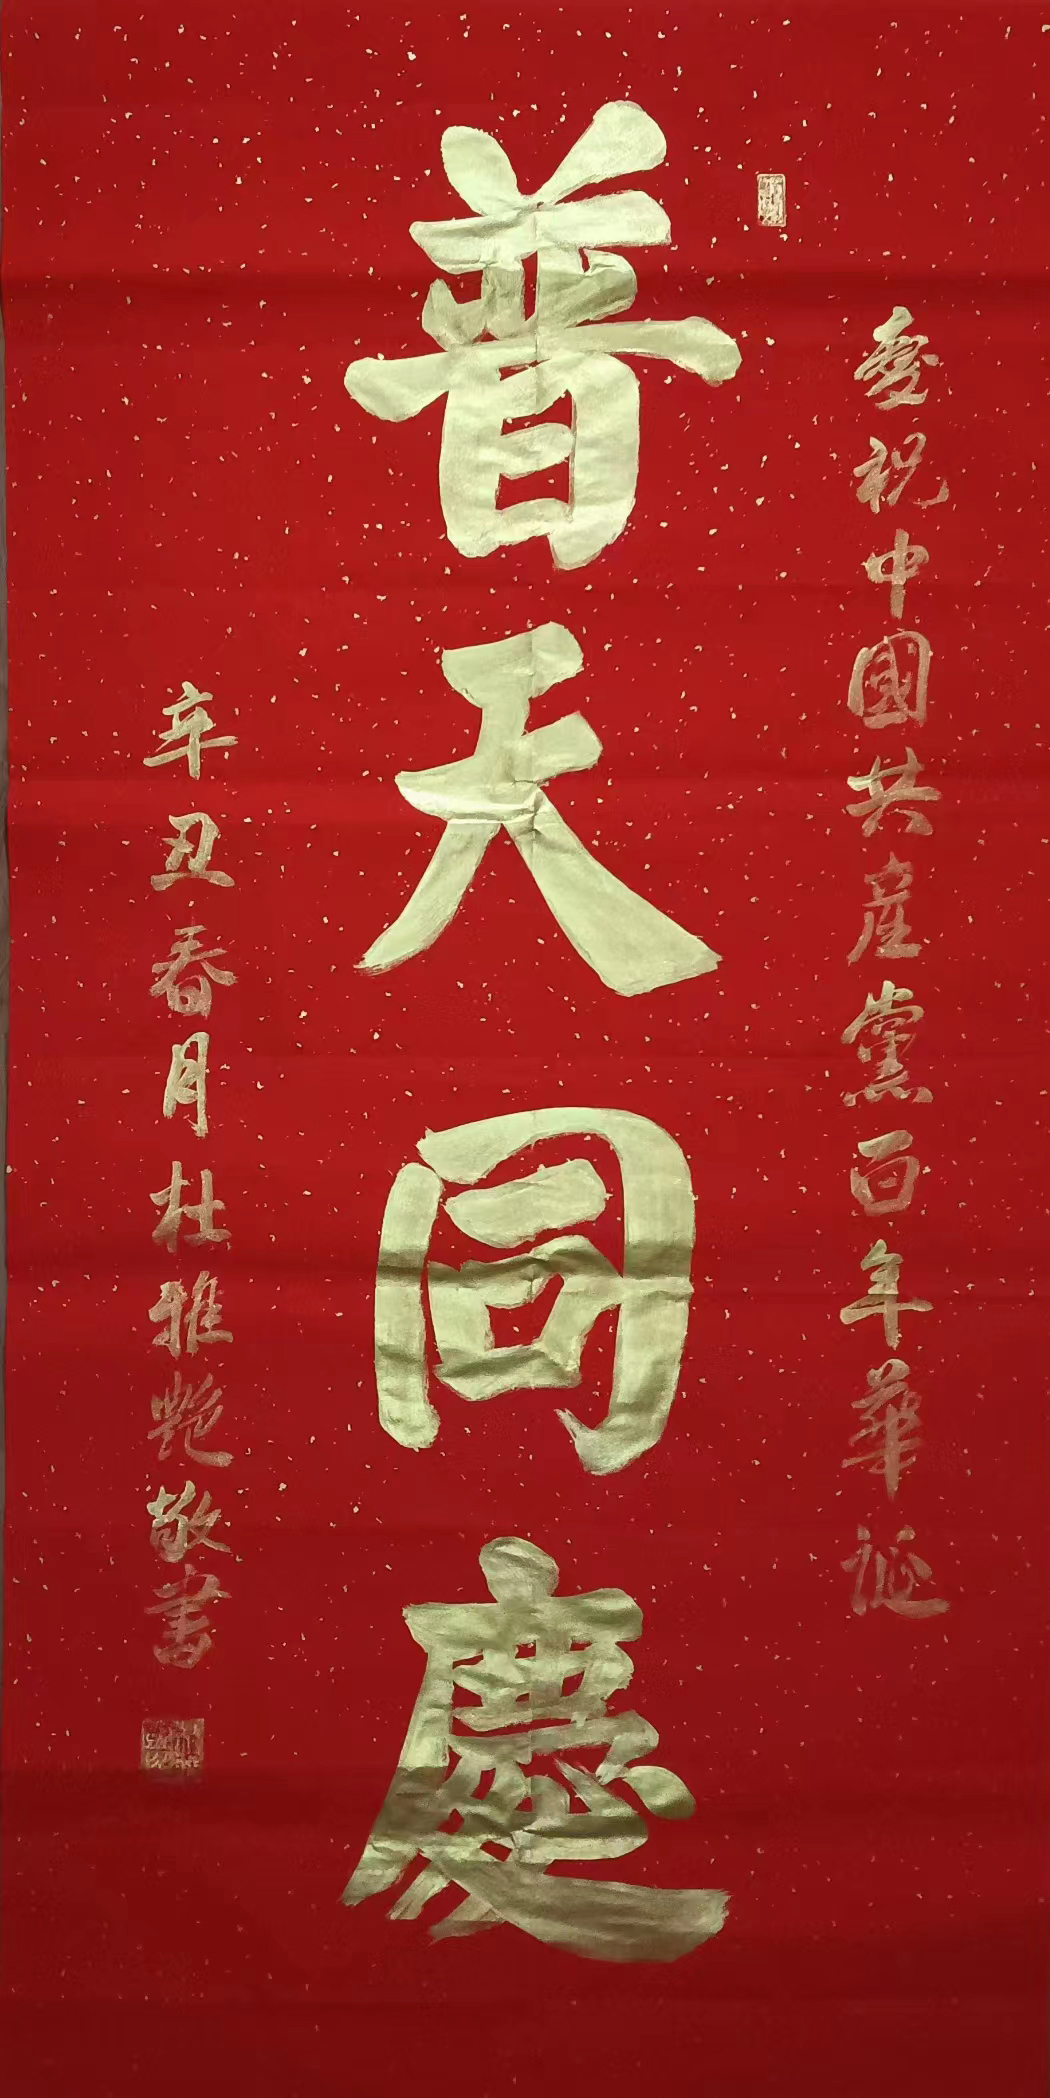 慶祝中國共產黨百年華誕
普天同慶
辛丑春月杜雅艷敬書